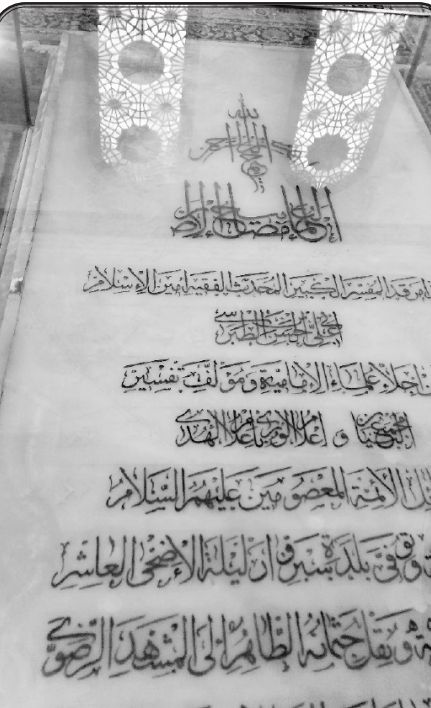 بسم الله الرحمن الرحيم
إن العلماء مصابيح الأرض
مرقد المفسر الكبير المحدث الفقيه امين الاسلام
ابي علي الحسن الطبرسي
اجلاء علماء الامامية ومؤلف تفسير
مجمع البيان و اعلام الورى باعلام الهدى
الأئمة المعصومين عليهم السلام
في بلدة سبزوار ليلة الاضحى العاشر
ونقل جثمانه الطاهر الى المشهد الرضوي